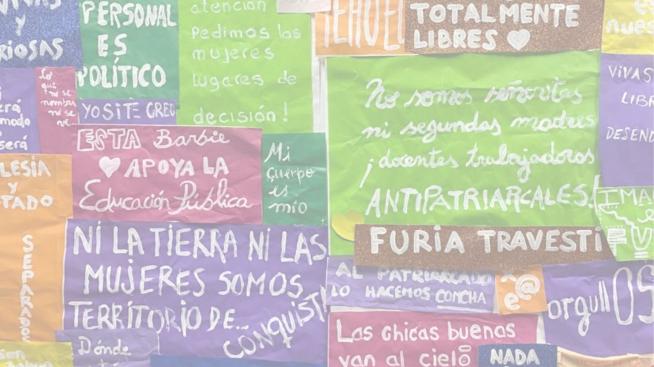 PERSONAL
ES
POLÍTICO
YO SÍ TE CREO
atención
Pedimos las
mujeres
lugares de
decisión!
TOTALMENTE
LIBRES
No somos señoritas
ni segundas madres
¡docentes trabajadoras
ANTIPATRIARCALES!
ESTA Barbie
APOYA LA
Educación Pública
Mi
cuerpo
es
mío
LO
que
no se
nombra
no se
ve
Y
SEPARADOS
NI LA TIERRA NI LAS
MUJERES SOMOS
TERRITORIO DE...
CONQUISTA
FURIA TRAVESTI
AL PATRIARCADO
LO HACEMOS CONCHA
orgullOS
Las chicas buenas
van al cielo
NADA
Dónde
VIVAS